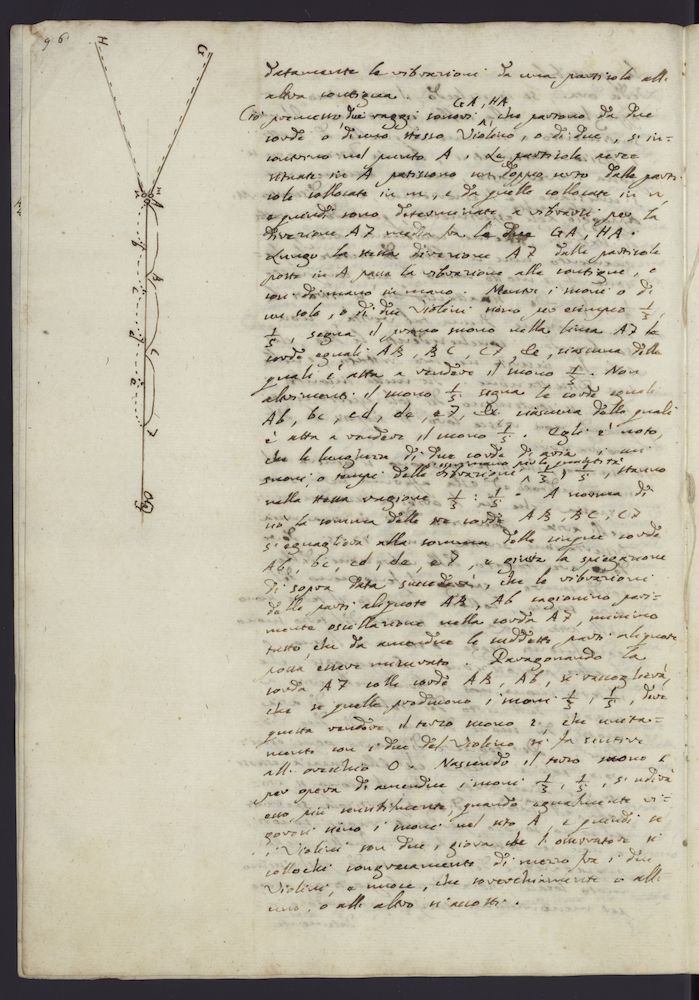 96
H
G
datamente le vibrazioni da una particola all'
altra contigua.
Ciò premesso due raggi sonori GA, HA, che partono da due
corde o d'uno stesso Violino, o di due, si in-
contrino nel punto A. Le particole aeree
situate in A patiscono un doppio urto dalle parti-
cole collocate in m, e da quelle collocate in n,
e quindi sono determinate a vibrarsi per la
direzione A7 media fra le due GA, HA.
Lungo la stessa direzione A7 dalle particole
poste in A passa la vibrazione alle contigue, e
così di mano in mano. Mentre i suoni o di
un solo, o di due Violini sono per esempio 1/3,
1/5, segna il primo suono nella linea A7 le
corde eguali AB, BC, C7, &c, ciascuna delle
quali è atta a rendere il suono 1/3. Non
altrimenti il suono 1/5 segna le corde eguali
Ab, bc, cd, de, e7, &c ciascuna delle quali
è atta a rendere il suono 1/5. Egli è noto,
che le lunghezze di due corde di aria, i cui
suoni, o tempi delle vibrazioni 1/3, 1/5, stanno
nella stessa ragione 1/3 : 1/5. A norma di
ciò la somma delle tre corde AB, BC, C7
s'eguaglierà alla somma delle cinque corde
Ab, bc, cd, de, e7, e giusta la spiegazione
di sopra data succederà, che le vibrazioni
delle parti aliquote AB, Ab cagionino pari-
mente oscillazione nella corda A7, minimo
tutto, che da amendue le suddette parti aliquote
possa essere misurato. Paragonando la
corda A7 colle corde AB, Ab, si raccoglierà,
che se quelle producono i suoni 1/3, 1/5, deve
questa rendere il terzo suono 1, che unita-
mente con i due del Violino si fa sentire
all'orecchio O. Nascendo il terzo suono 1
per opera di amendue i suoni 1/3, 1/5, si udirà
esso più sensibilmente, quando egualmente vi-
gorosi sieno i suoni nel sito A, e quindi se
i Violini son due, giova che l'osservatore si
collochi congruamente di mezzo fra i due
Violini, e nuoce, che soverchiamente o all'
uno, o all'altro si accosti.